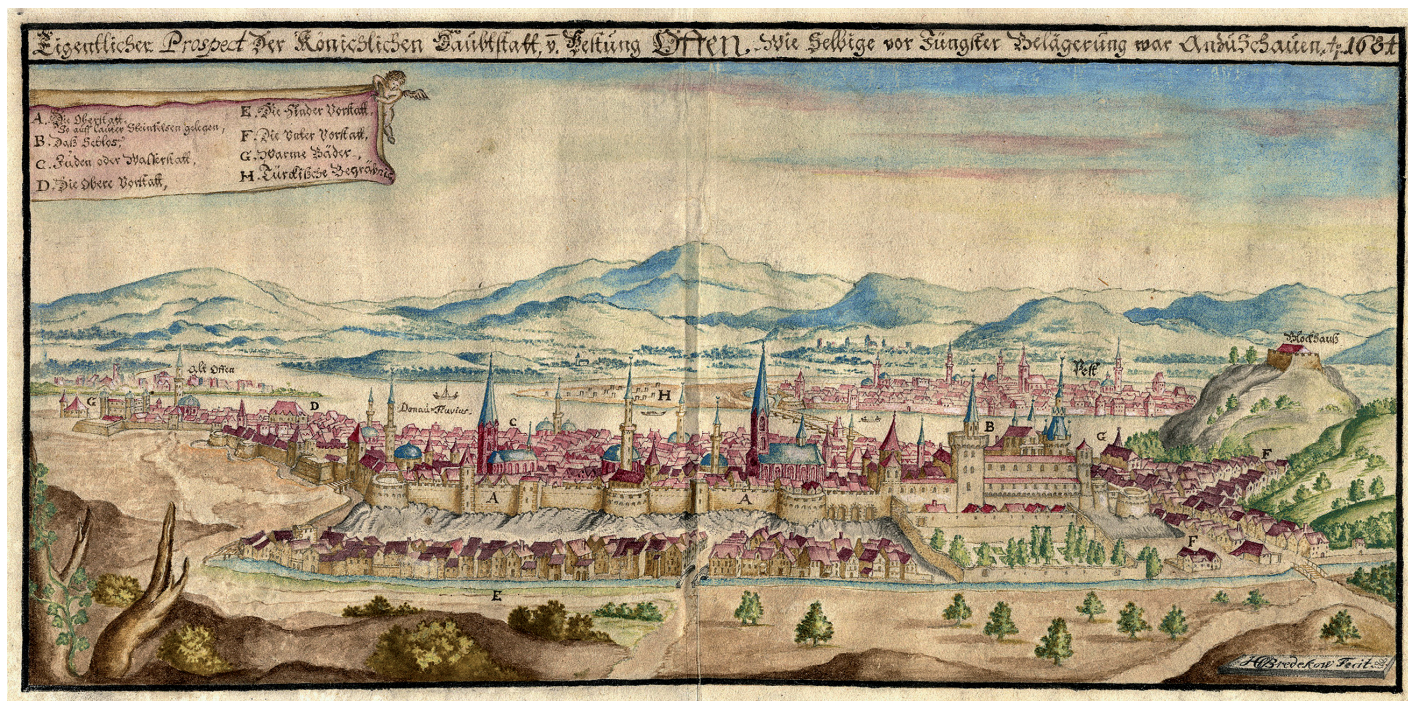 Eigentlicher Prospect Der Königlichen Haubtstatt, v̄. Vestung Offen. Wie Selbige vor Jüngster Belägerung war Anzuschauen, Aͦ 1684
A. Die Oberstatt,
So auff lauter Steinfelsen gelegen,
B. Daß Schlos,
C. Juden oder Wasserstatt,
D. Die Obere Vorstatt,
E. Vorstatt,
F. Die Unter Vorstatt,
G. Warme Bäder,
H. Türckische Begräbnis
Blockhauß
Alt Offen
Pest
G
D
H
Donau Fluvius
C
B
G
F
A
A
F
E
HBredekow Fecit